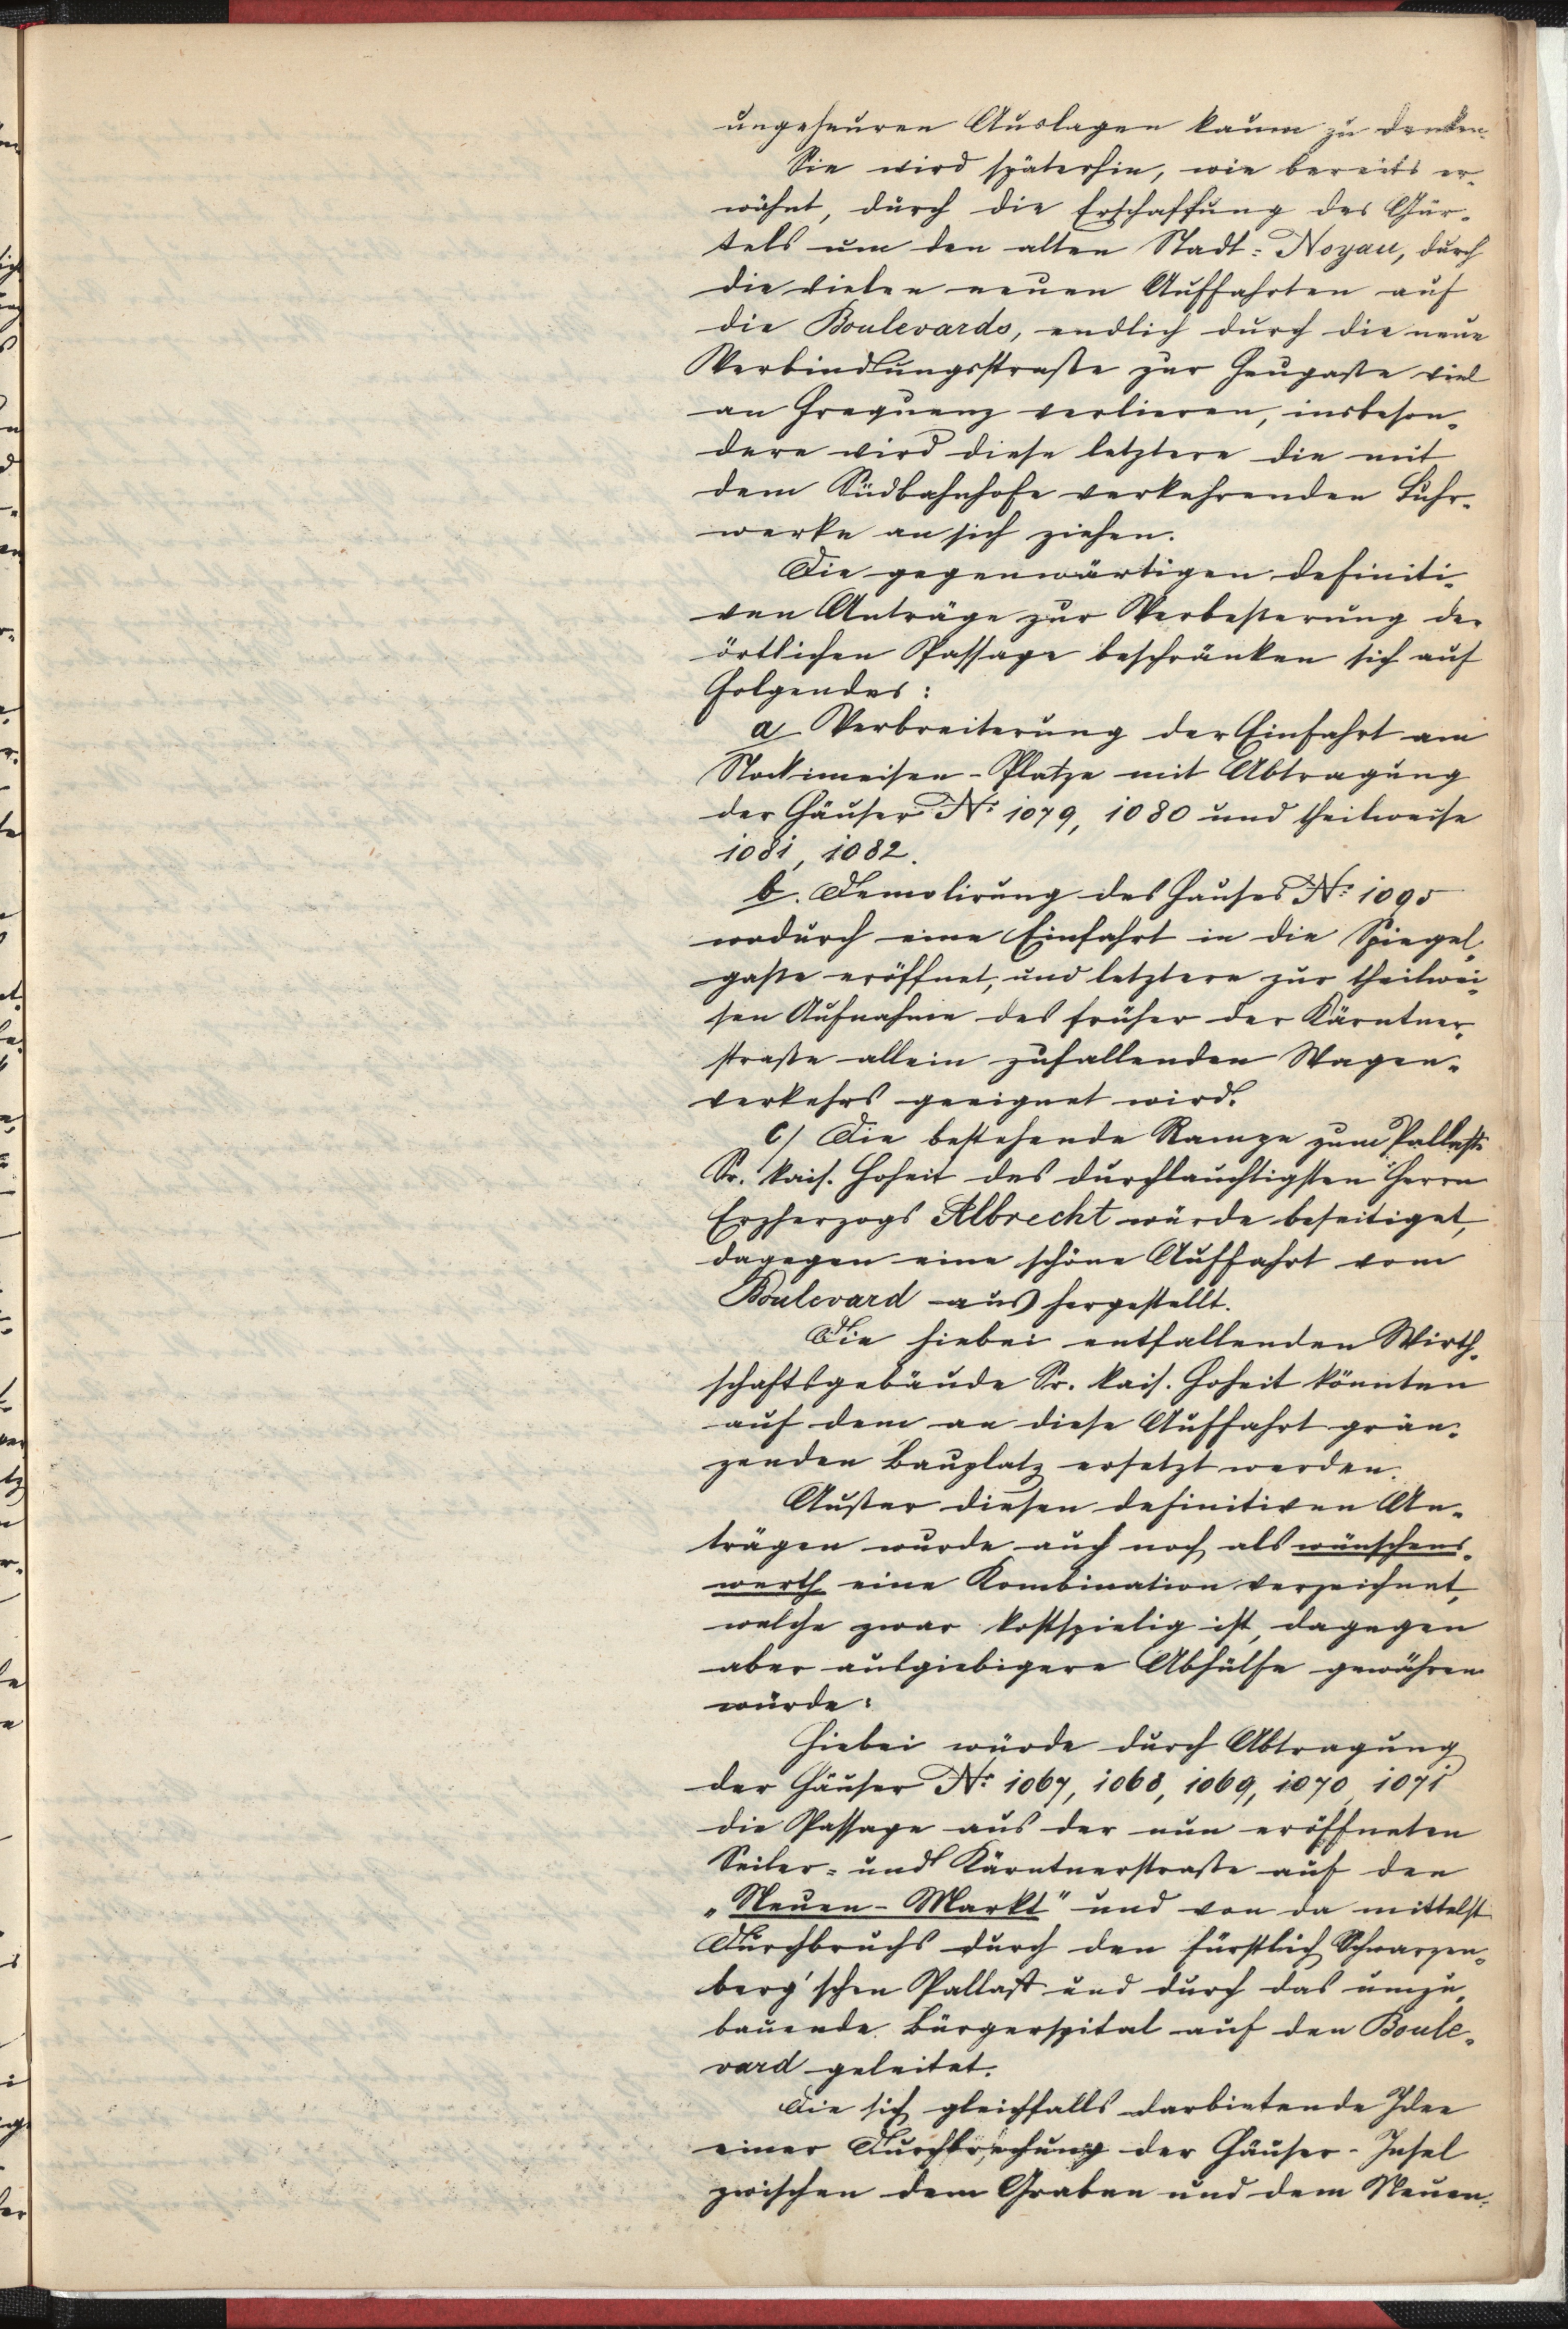 ungeheuren Auslagen kaum zu denken.
Sie wird späterhin, wie bereits er-
wähnt, durch die Erschaffung des Gür-
tels um den alten Stadt-Noyau, durch
die vielen neuen Auffahrten auf
die Boulevards, endlich durch die neue
Verbindungsstraße zur Heugaße viel
an Frequenz verlieren, insbeson-
dere wird diese letztere die mit
dem Südbahnhofe verkehrenden Fuhr-
werke an sich ziehen.
Die gegenwärtigen definiti-
ven Anträge zur Verbeßerung der
örtlichen Passage beschränken sich auf
Folgendes:
a Verbreiterung der Einfahrt am
Stockimeisen-Platze mit Abtragung
der Häuser No 1079, 1080 und theilweise
1081, 1082.
b. Demolirung des Hauses No 1095
wodurch eine Einfahrt in die Spiegel-
gaße eröffnet, und letztere zur theilwei-
sen Aufnahme des früher der Kärntner-
straße allein zufallenden Wagen-
verkehrs geeignet wird.
c/ Die bestehende Rampe zum Pallaste
Sr. kais. Hoheit des durchlauchtigsten Herrn
Erzherzogs Albrecht würde beseitiget,
dagegen eine schöne Auffahrt vom
Boulevard aus hergestellt.
Die hiebei entfallenden Wirth-
schaftsgebäude Sr. kais. Hoheit könnten
auf dem an diese Auffahrt grän-
zenden Bauplatz ersetzt werden.
Außer diesen definitiven An-
trägen wurde auch noch als wünschens-
werth eine Kombination verzeichnet,
welche zwar kostspielig ist, dagegen
aber ausgiebigere Abhülfe gewähren
würde:
Hiebei würde durch Abtragung
der Häuser No 1067, 1068, 1069, 1070, 1071
die Passage aus der nun eröffneten
Seiler- und Kärntnerstraße auf den
„Neuen-Markt" und von da mittelst
Durchbruchs durch den fürstlich Schwarzen-
berg'schen Pallast und durch das umzu-
bauende Bürgerspital auf den Boule-
vard geleitet.
Die sich gleichfalls darbietende Idee
einer Durchbrechung der Häuser-Insel
zwischen dem Graben und dem Neuen-